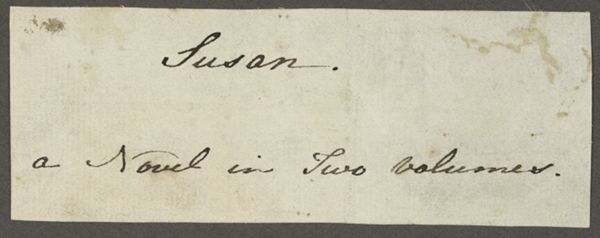 Susan.
a Novel in Two volumes.